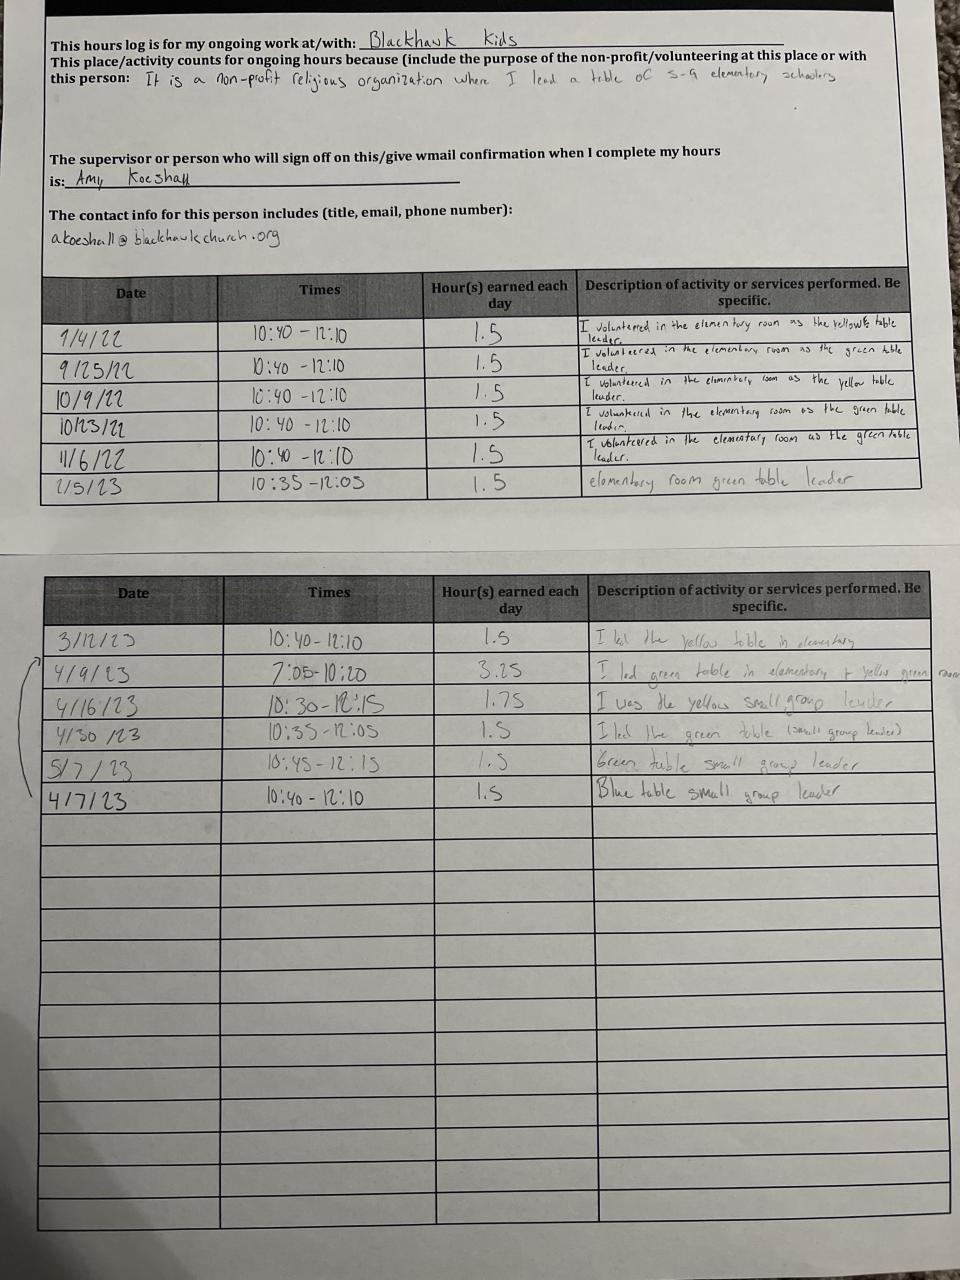 This hours log is for my ongoing work at/with: Blackhawk Kids
This place/activity counts for ongoing hours because (include the purpose of the non-profit/volunteering at this place or with
this person: It is a non-profit religious organization where I lead a table of 5-9 elementary schoolers
The supervisor or person who will sign off on this/give wmail confirmation when I complete my hours
is: Amy Koeshall
The contact info for this person includes (title, email, phone number):
akoeshall@blackhawkchurch.org
Date Times Hour(s) earned each day Description of activity or services performed. Be specific.
9/4/22 10:40 - 12:10 1.5 I volunteered in the elementary room as the yellow table leader.
9/25/22 10:40 - 12:10 1.5 I volunteered in the elementary room as the green table leader.
10/9/22 10:40 - 12:10 1.5 I volunteered in the elementary room as the yellow table leader.
10/23/22 10:40 - 12:10 1.5 I volunteered in the elementary room as the green table leader.
11/6/22 10:40 - 12:10 1.5 I volunteered in the elementary room as the green table leader.
2/5/23 10:35 - 12:05 1.5 elementary room green table leader
Date Times Hour(s) earned each day Description of activity or services performed. Be specific.
3/12/23 10:40 - 12:10 1.5 I led the yellow table in elementary
4/9/23 7:05-10:20 3.25 I led green table in elementary + yellow green room
4/16/23 10:30-12:15 1.75 I was the yellow small group leader
4/30/23 10:35-12:05 1.5 I led the green table (small group leader)
5/7/23 10:45-12:15 1.5 Green table small group leader
4/7/23 10:40 - 12:10 1.5 Blue table small group leader